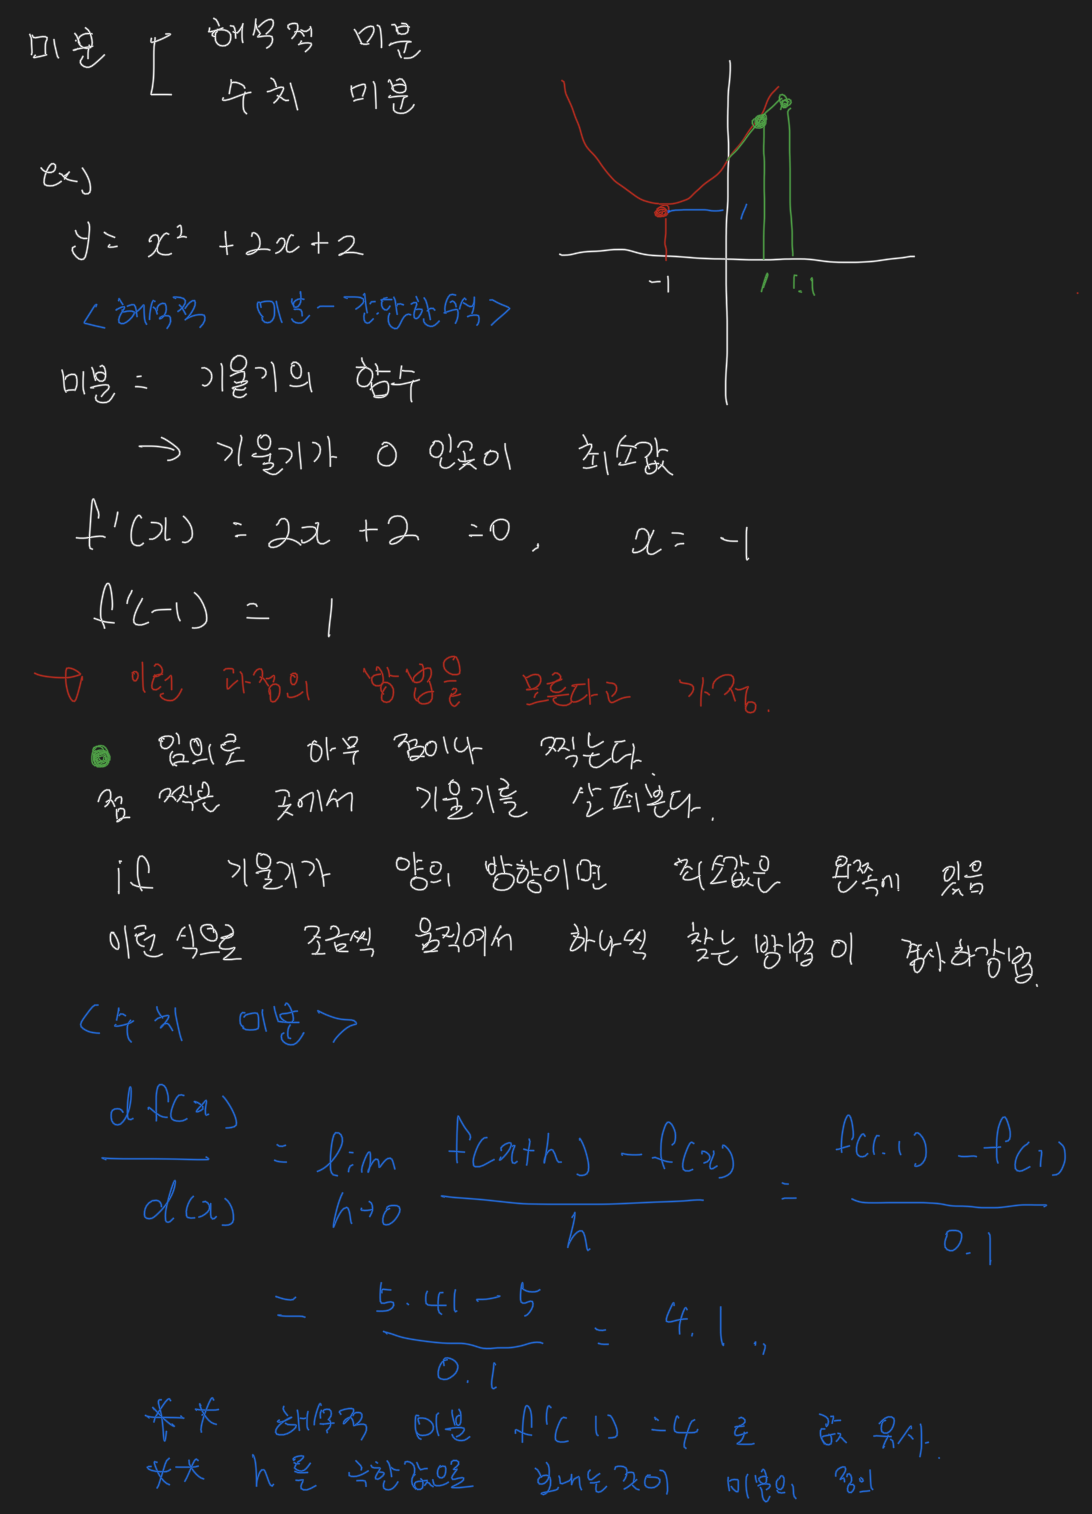 미분 [ 해석적 미분
수치 미분
ex)
y = x² + 2x + 2
1
-1
1 1.1
<해석적 미분 - 간단한 수식>
미분 = 기울기의 함수
→ 기울기가 0 인곳이 최소값
f'(x) = 2x + 2 = 0, x = -1
f'(-1) = 1
→ 이런 과정의 방법을 모른다고 가정.
임의로 아무 점이나 찍는다.
점 찍은 곳에서 기울기를 살펴본다.
if 기울기가 양의 방향이면 최소값은 왼쪽에 있음
이런 식으로 조금씩 움직여서 하나씩 찾는 방법이 경사하강법.
<수치 미분>
df(x) / d(x) = lim h→0 f(x+h) - f(x) / h = f(1.1) - f(1) / 0.1
= 5.41 - 5 / 0.1 = 4.1
** 해석적 미분 f'(1) = 4 로 값 유사.
** h를 극한값으로 보내는것이 미분의 정의